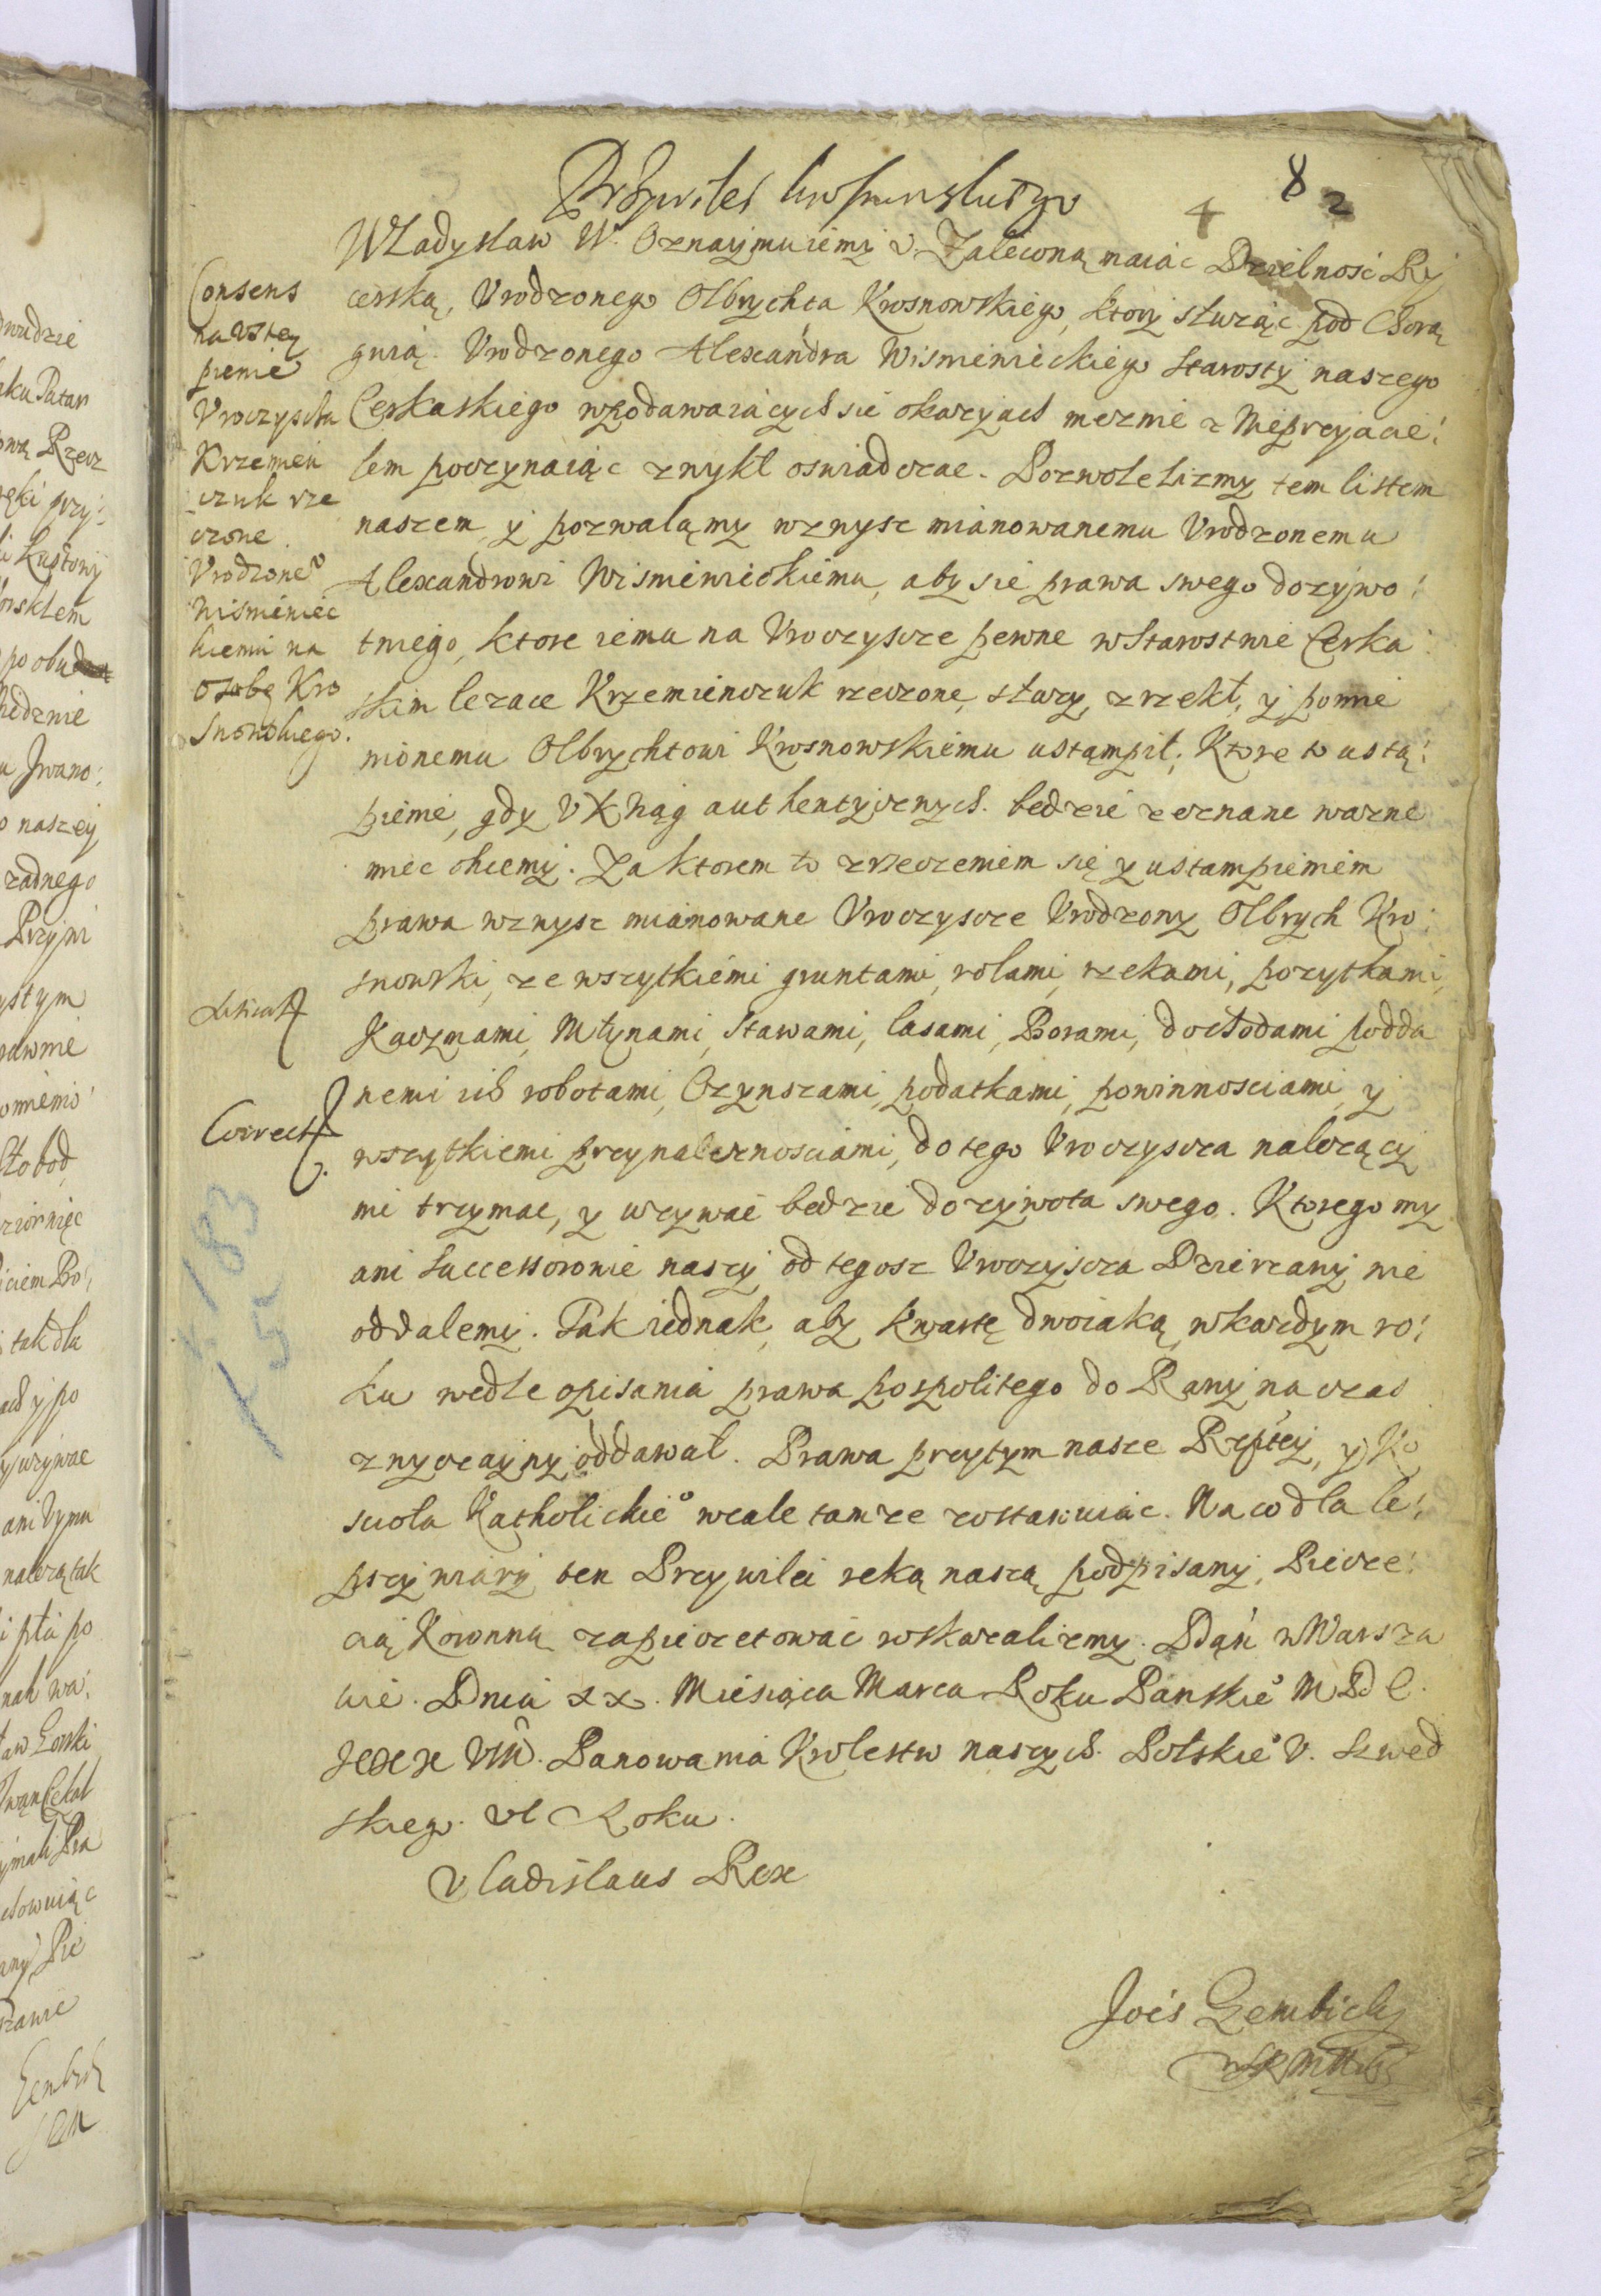 8 2
4
Władysław W. Oznaymuiemy v. Zaleconą maiąc Dzielnosc Ry
cerską, Vrodzonego Olbrychta Krosnowskiego, ktory słuząc pod Chorą
gwią Vrodzonego Alexandra Wisniewieckiego Starosty naszego
Cerkaskiego wpodawaiących sie okazyach meznie z Nieprzyiacie:
lem poczynaiąc zwykł oswiadczac. Pozwolelizmy tem listem
naszem y pozwalamy wznysz mianowanemu Vrodzonemu
Alexandrowi Wisniewieckiemu, aby sie prawa swego dozywo:
tniego, ktore iemu na Vroczyscze pewne w Starostwie Cerka:
skim lezace Krzemienczuk rzeczone, słuzy, zrzekł, y pomie
nionemu Olbrychtowi Krosnowskiemu ustąmpił; Ktore to ustą:
pienie, gdy V Xhąg authentycznych będzie zeznane wazne
miec chcemy. Za ktorem to zrzeczeniem się y ustampieniem
prawa wznysz mianowane Vroczyscze Vrodzony Olbrych Kro
snowski, ze wszytkiemi gruntami, rolami, rzekami, pozytkami,
Kaczmami, Młynami, Stawami, lasami, Borami, dochodami podda
nemi ich robotami, Czynszami, podatkami, powinnosciami, y
wszytkiemi przynaleznosciami, do tego Vroczyscza nalezący
mi trzymac, y uzywac bedzie dozywota swego. Ktorego my
ani Successorowie naszy od tegosz Vroczyscza Dzierzawy nie
oddalemy. Tak iednak, aby kwartę dwoiaką, w kazdym ro:
ku wedle opisania prawa pospolitego do Rawy na czas
zwyczayny oddawał. Prawa przytym nasze Rzptey, y Ko
scioła Katholickie° wcale tamze zostawuiąc. Na co dla le:
pszy wiary ten Przywilei ręką naszą podpisany, Piecze:
cią Koronną zapieczetowac wskazalizmy. Dąń w Warsza
wie. Dnia XX. Miesiąca Marca Roku Panskie° MDC.
XXXVIII. Panowania Krolestw naszych Polskie° V. Szwed
skieg. VI Roku.
Vladislaus Rex
Jois Gembicky
Consens
na Vstęp
pienie
Vroczyscha
Krzemien
czuk rze
czone
Vrodzone°
Wisniewiec
kiemu na
Osobę Kro
snowskiego.
Correct
K 183
T 5